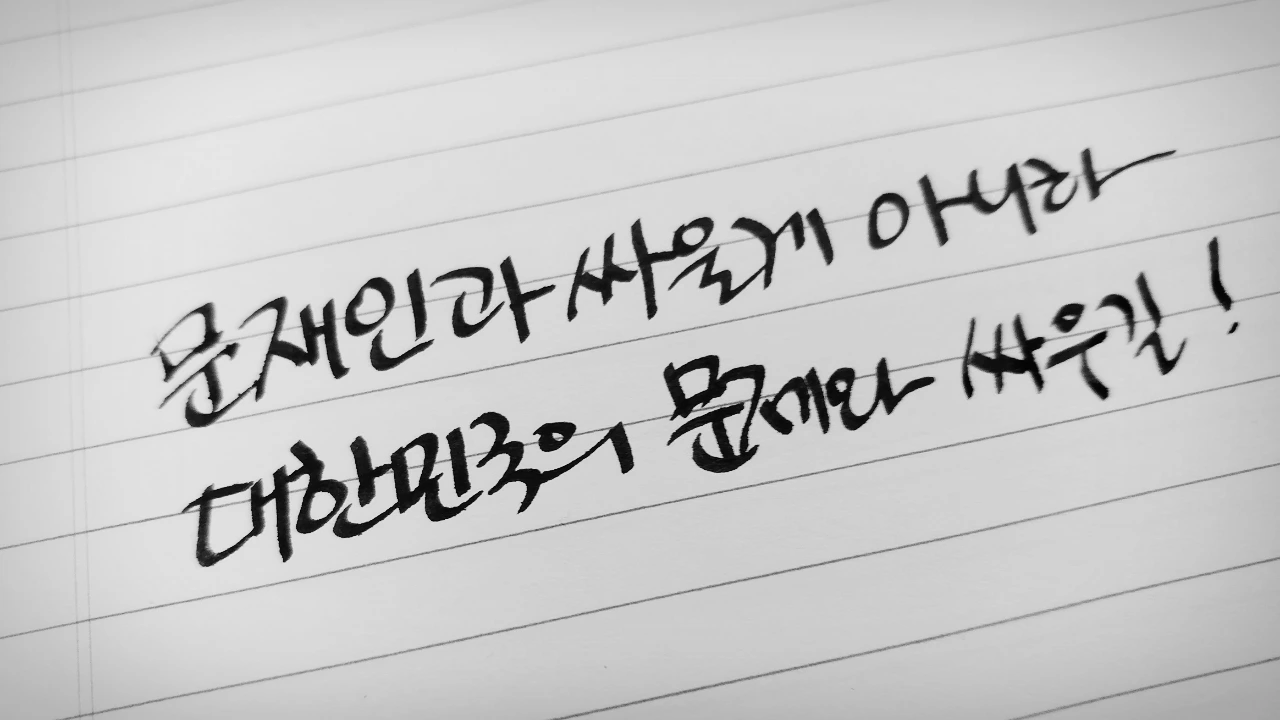 문재인과 싸울게 아니라
대한민국의 문제와 싸우길!